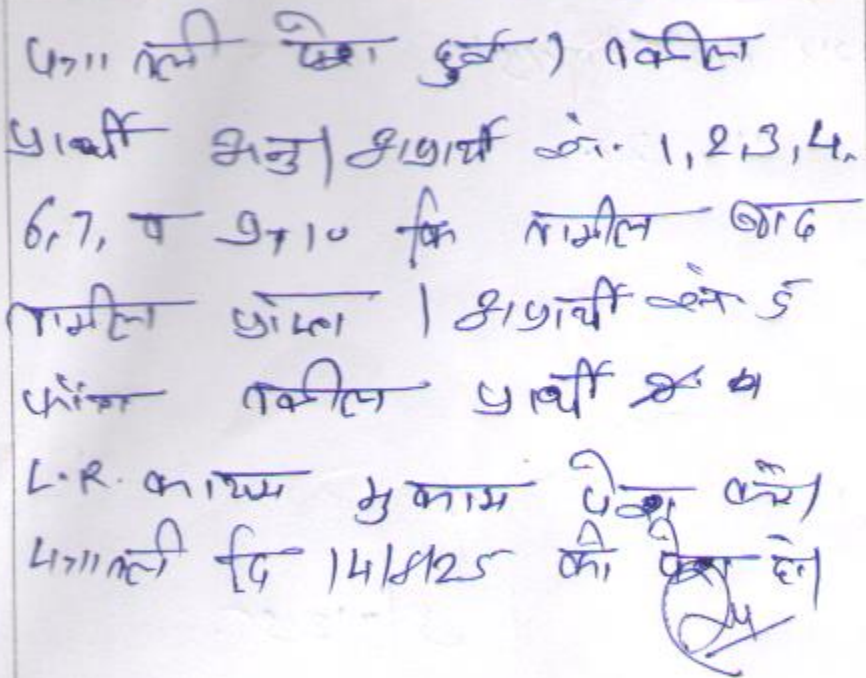 पत्रावली पेश हुई। वकील
प्रार्थी अनु। अप्रार्थी सं. 1,2,3,4,
6,7, व 9,10 कि तामील बाद
तामील प्राप्त। अप्रार्थी सं. 5
फोत वकील प्रार्थी
L.R. कायम मुकाम पेश करे।
पत्रावली दि 14/8/25 को पेश हो।